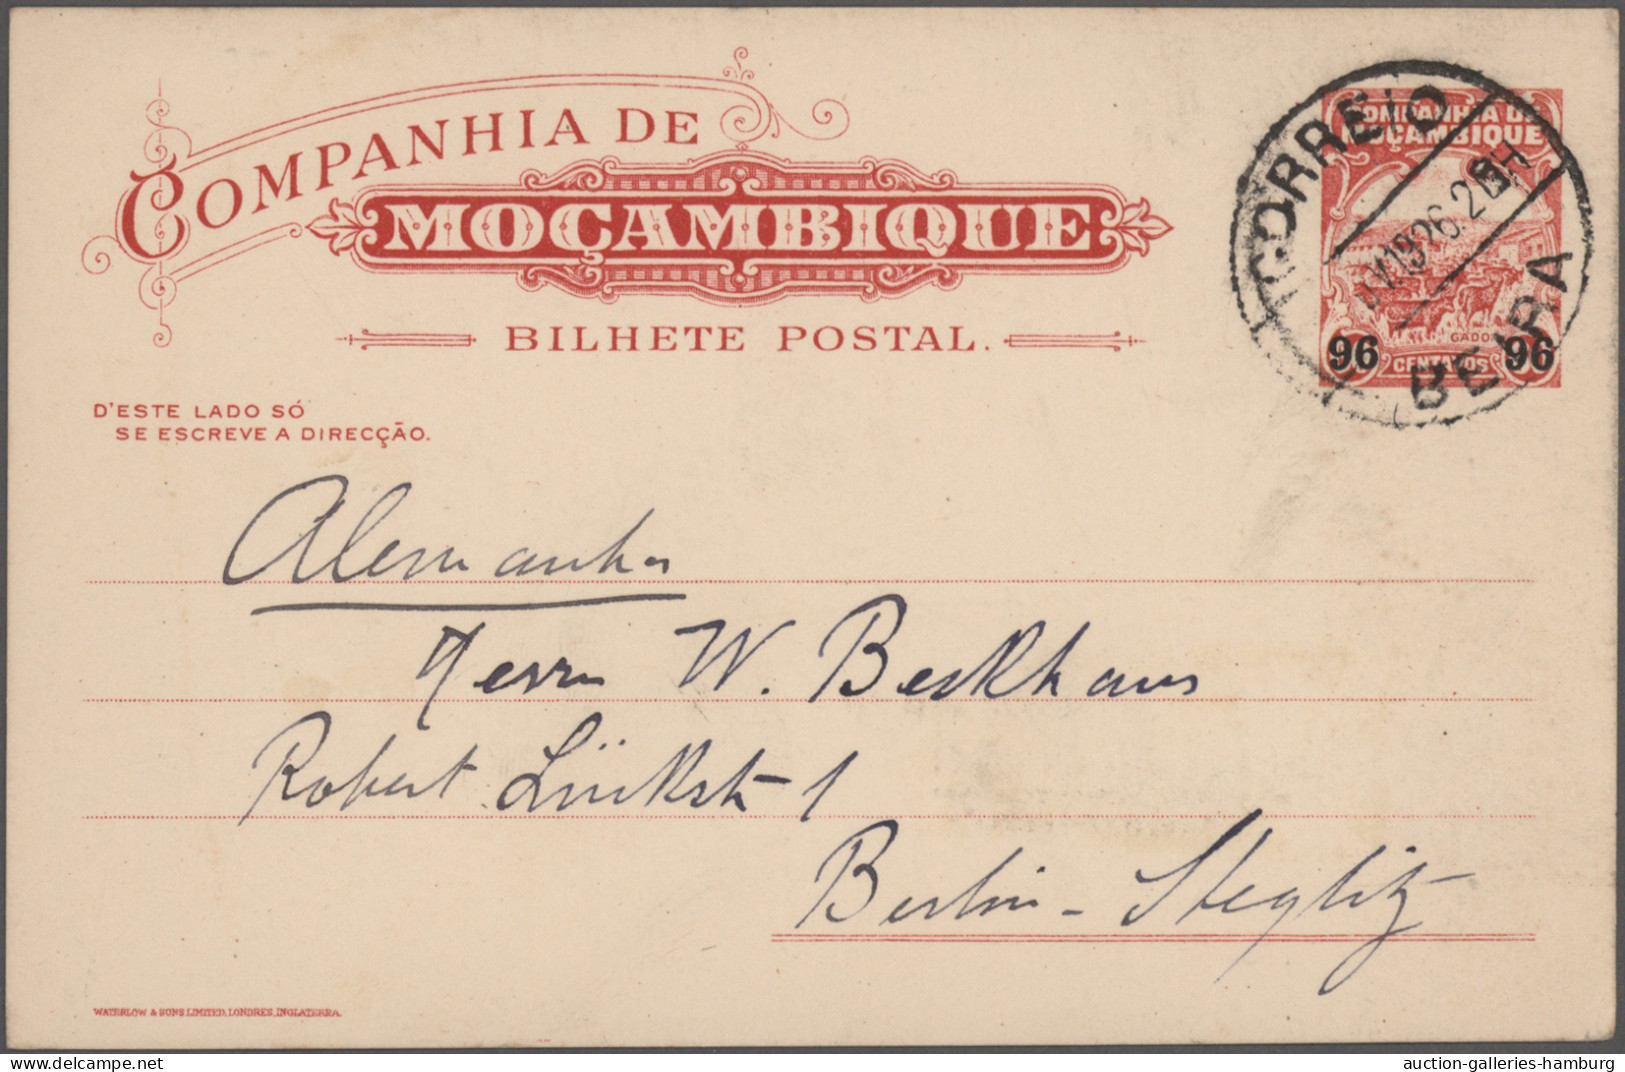 COMPANHIA DE
MOÇAMBIQUE
BILHETE POSTAL.
COMPANHIA DE
MOÇAMBIQUE
GADO
96 CENTAVOS 96
CORREIO
1926
BEIRA
D'ESTE LADO SÓ
SE ESCREVE A DIRECÇÃO.
Alemanha
Herrn W. Beckhaus
Robert Lückstr 1
Berlin - Steglitz
WATERLOW & SONS LIMITED, LONDRES, INGLATERRA.
delcampe.net
auction-galleries-hamburg